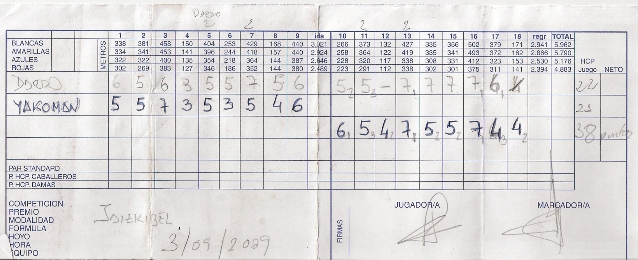 DARDO
2 2 2
1 2 3 4 5 6 7 8 9 ida 10 11 12 13 14 15 16 17 18 regr TOTAL
METROS
BLANCAS 338 381 458 150 404 253 429 168 440 3.021 266 373 132 427 335 356 502 379 171 2.941 5.962
AMARILLAS 334 341 453 141 395 244 418 157 440 2.924 258 364 122 419 335 341 493 372 162 2.866 5.790
AZULES 322 322 400 135 354 218 364 144 387 2.646 228 320 117 338 308 331 412 323 153 2.530 5.176
ROJAS 302 269 383 127 346 186 352 144 380 2.489 223 291 112 338 302 301 375 311 141 2.394 4.883
HCP Juego NETO
DARDO 6 5 6 3 5 5 7 5 6 5 5 - 7 7 7 7 6
YAKOMAN 5 5 7 3 5 3 5 4 6
6 5 4 7 5 5 7 4 4 38 puntos
PAR STANDARD
P. HCP. CABALLEROS
P. HCP. DAMAS
COMPETICION
PREMIO
MODALIDAD
FORMULA
HOYO
HORA
EQUIPO
JAIZKIBEL
3/09/2009
FIRMAS
JUGADOR/A
MARCADOR/A